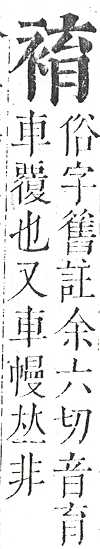 俗字舊註余六切音育
車覆也又車幔𠀤非